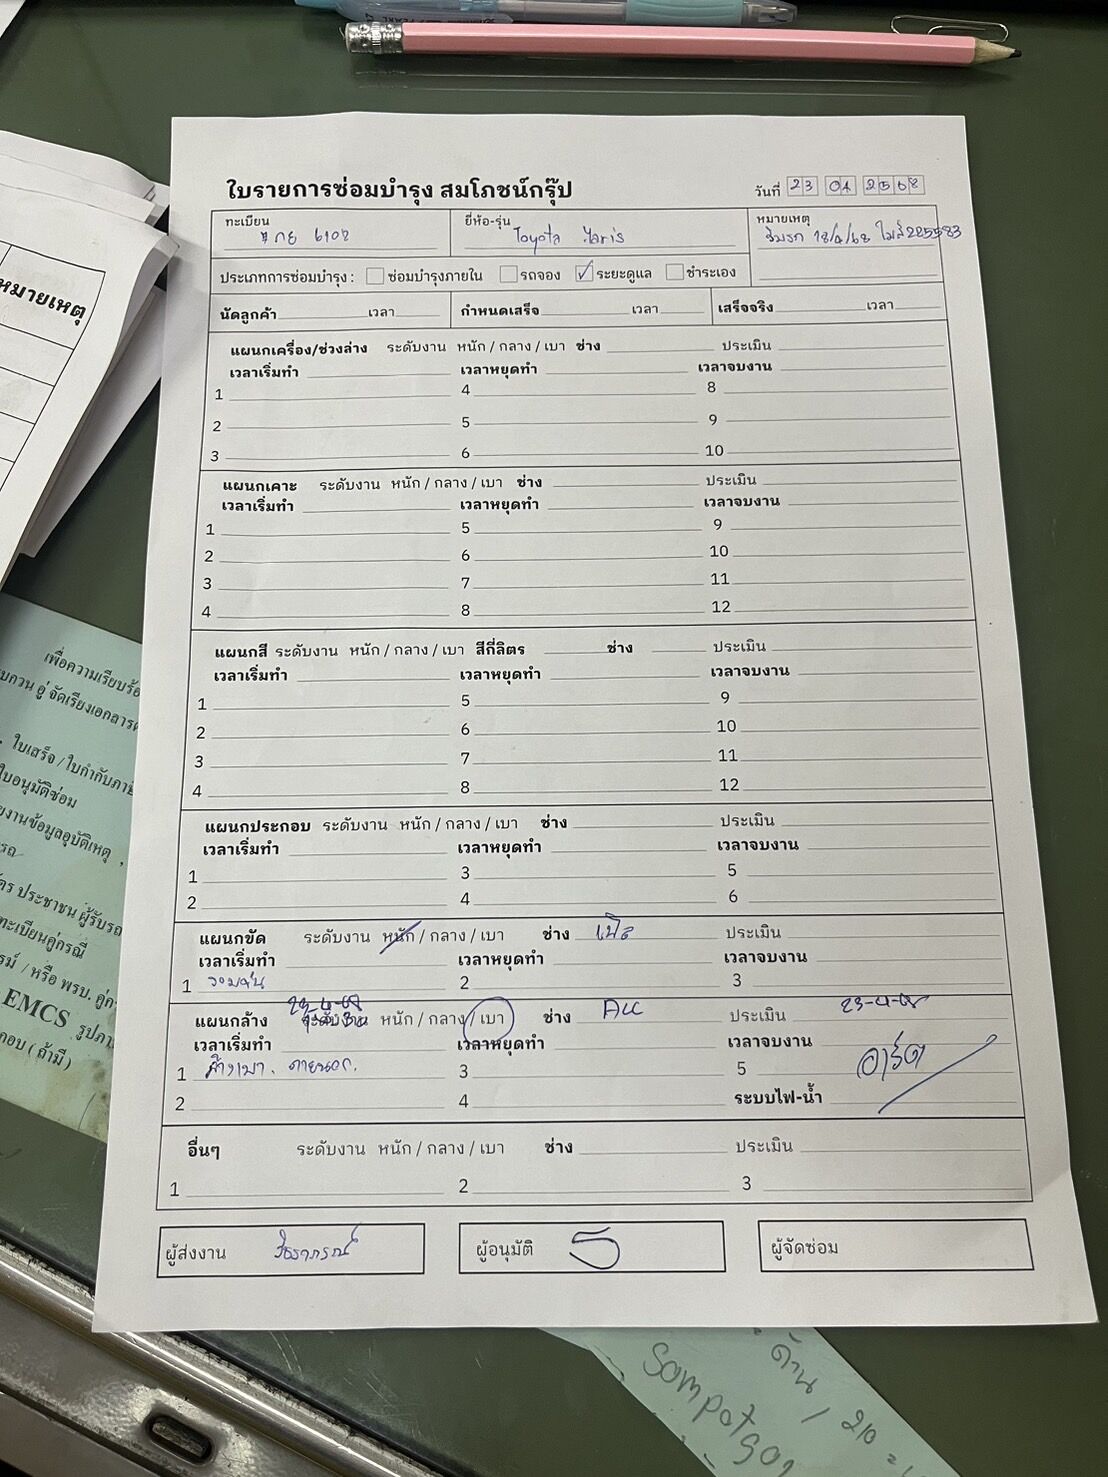 ใบรายการซ่อมบำรุง สมโภชน์กรุ๊ป
วันที่ 23 04 2568
ทะเบียน
6102
ยี่ห้อ-รุ่น Toyota Yaris
หมายเหตุ
รับรถ 18/4/68
ประเภทการซ่อมบำรุง : ซ่อมบำรุงภายใน รถจอง ✓ ระยะดูแล ชำระเอง
นัดลูกค้า เวลา กำหนดเสร็จ เวลา เสร็จจริง เวลา
แผนกเครื่อง/ช่วงล่าง ระดับงาน หนัก / กลาง / เบา ช่าง ประเมิน
เวลาเริ่มทำ เวลาหยุดทำ เวลาจบงาน
1 4 8
2 5 9
3 6 10
แผนกเคาะ ระดับงาน หนัก / กลาง / เบา ช่าง ประเมิน
เวลาเริ่มทำ เวลาหยุดทำ เวลาจบงาน
1 5 9
2 6 10
3 7 11
4 8 12
แผนกสี ระดับงาน หนัก / กลาง / เบา สีกี่ลิตร ช่าง ประเมิน
เวลาเริ่มทำ เวลาหยุดทำ เวลาจบงาน
1 5 9
2 6 10
3 7 11
4 8 12
แผนกประกอบ ระดับงาน หนัก / กลาง / เบา ช่าง ประเมิน
เวลาเริ่มทำ เวลาหยุดทำ เวลาจบงาน
1 3 5
2 4 6
แผนกขัด ระดับงาน หนัก / กลาง / เบา ช่าง ประเมิน
เวลาเริ่มทำ เวลาหยุดทำ เวลาจบงาน
1 2 3
23-4-68
แผนกล้าง ระดับงาน หนัก / กลาง / เบา ช่าง ประเมิน 23-4-68
เวลาเริ่มทำ เวลาหยุดทำ เวลาจบงาน
1 ล้างเบา. ภายนอก. 3 5
2 4 ระบบไฟ-น้ำ
อื่นๆ ระดับงาน หนัก / กลาง / เบา ช่าง ประเมิน
1 2 3
ผู้ส่งงาน
ผู้อนุมัติ
ผู้จัดซ่อม
หมายเหตุ
เพื่อความเรียบร้อ
จัดเรียงเอกสาร
ใบเสร็จ / ใบกำกับภาษี
ใบอนุมัติซ่อม
งานข้อมูลอุบัติเหตุ ,
ประชาชน ผู้รับรถ
ทะเบียนคู่กรณี
/ หรือ พรบ.
EMCS รูปภา
( ถ้ามี )
ด้าน / 210 =